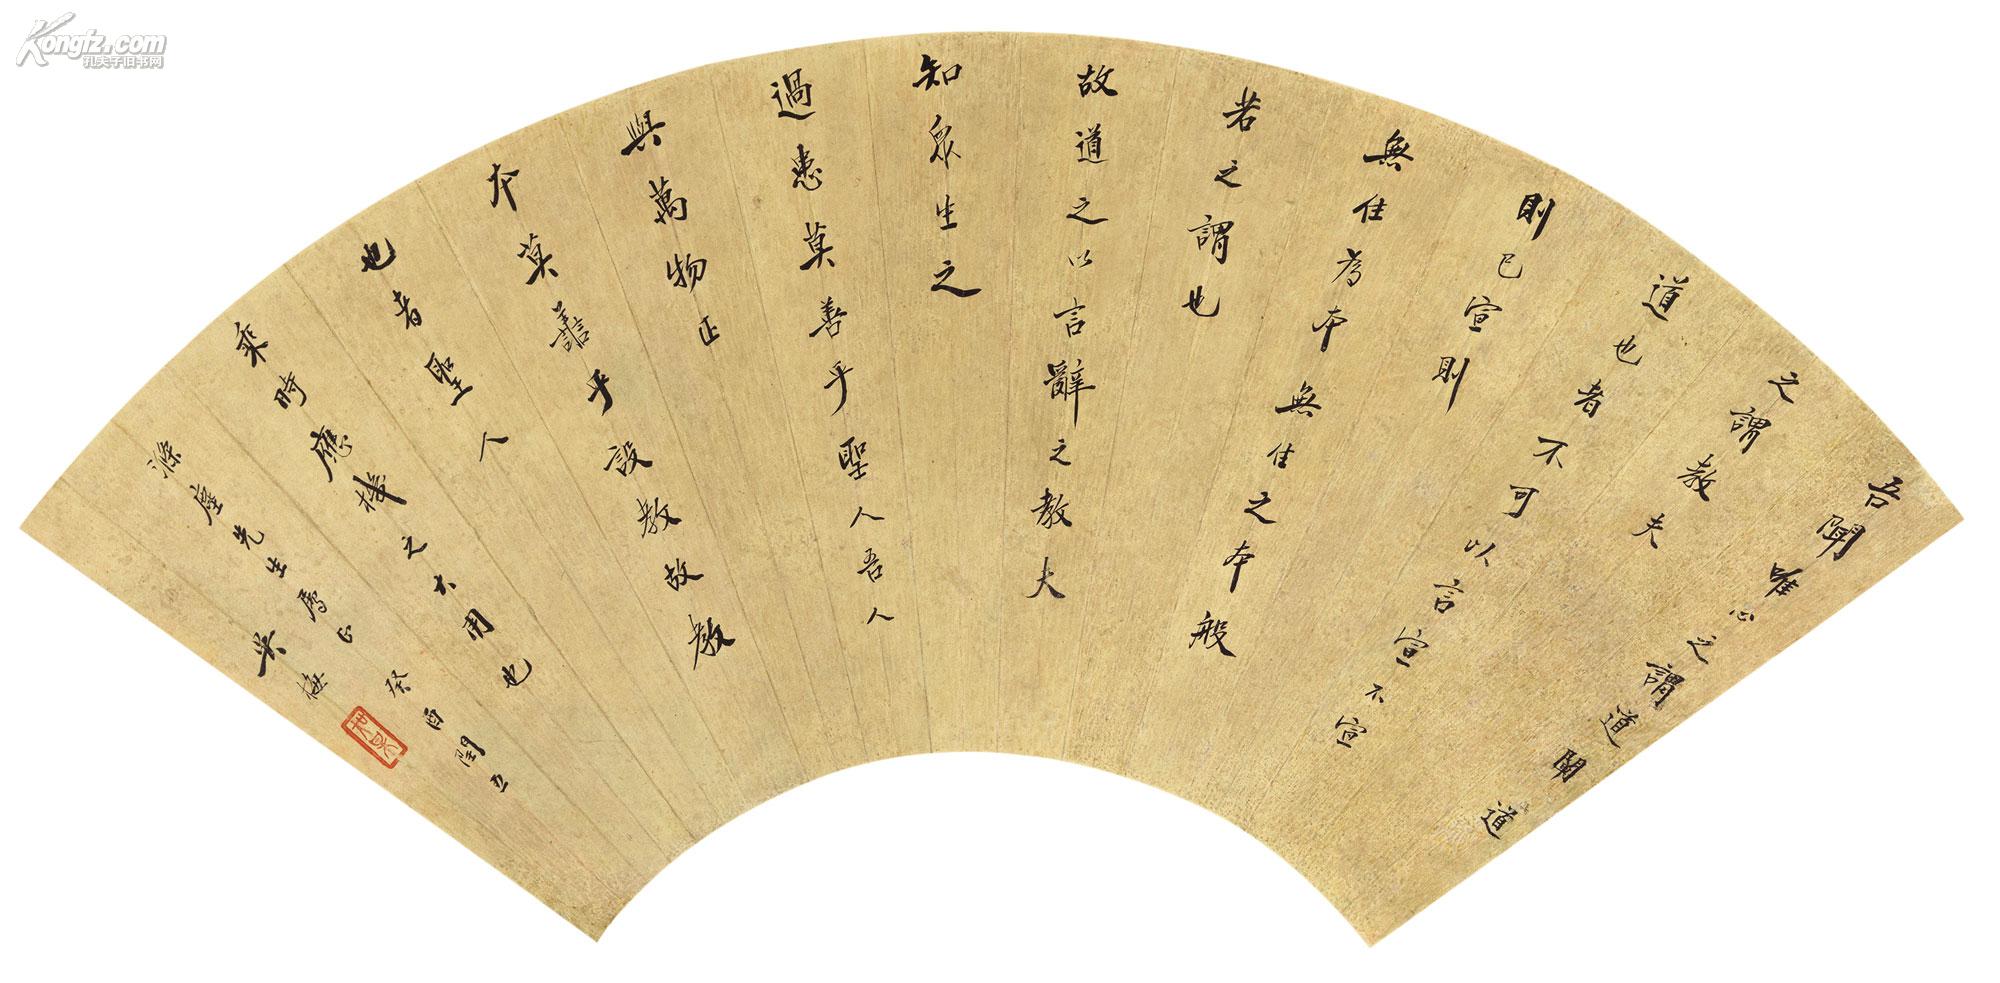 吾聞唯心之謂道闡道
之謂教夫
道也者不可以言宣不宣
則已宣則
無住為本無住之本般
若之謂也
故道之以言辭之教夫
知眾生之
過患莫善乎聖人吾人
與萬物正
本莫譱乎設教故教
也者聖人
乘時應機之大用也
滌塵先生屬正
癸酉閏五
吳梅
Kongfz.com
孔夫子旧书网